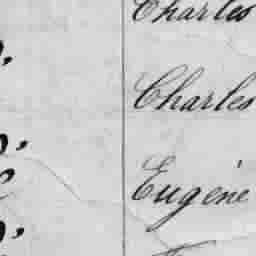 Charles
Charles
Eugène